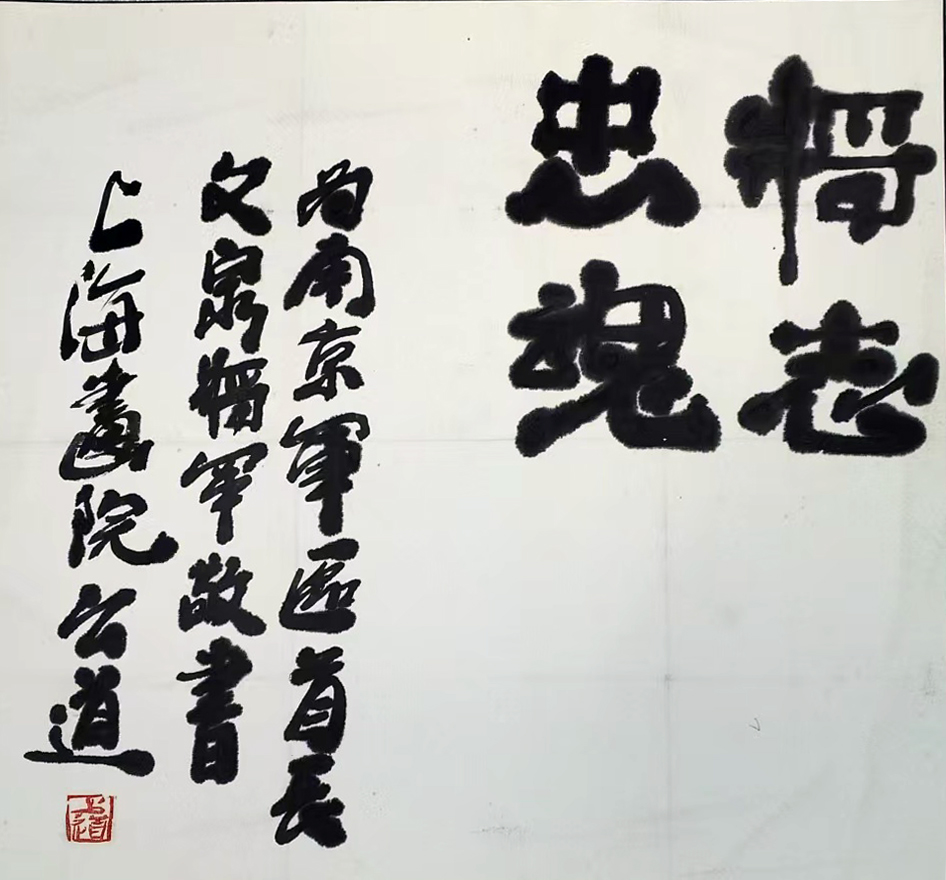 將志
忠魂
为南京軍區首長
文泉將軍敬書
上海畫院公道